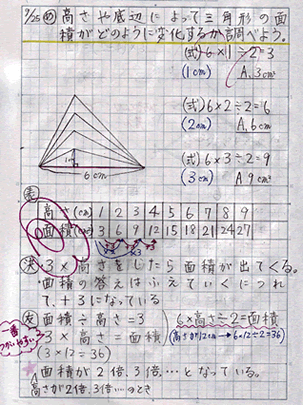 7/25 め 高さや底辺によって三角形の面
積がどのように変化するか調べよう。
(式) 6×1÷2=3
(1cm) A.3cm²
(式) 6×2÷2=6
(2cm) A.6cm
(式) 6×3÷2=9
(3cm) A 9cm²
1cm
6cm
表
高さ(cm) 1 2 3 4 5 6 7 8 9
面積(cm²) 3 6 9 12 15 18 21 24 27
+3 +3 +3
決 3×高さをしたら面積が出てくる。
・面積の答えはふえていくにつれ
て、+3になっている
友 面積÷高さ=3
3×高さ=面積
(3×12=36)
6×高さ÷2=面積
(高さが12cm→6×12÷2=36)
一番
つかいやすい
面積が2倍、3倍…となっている。
高さが2倍、3倍…のとき